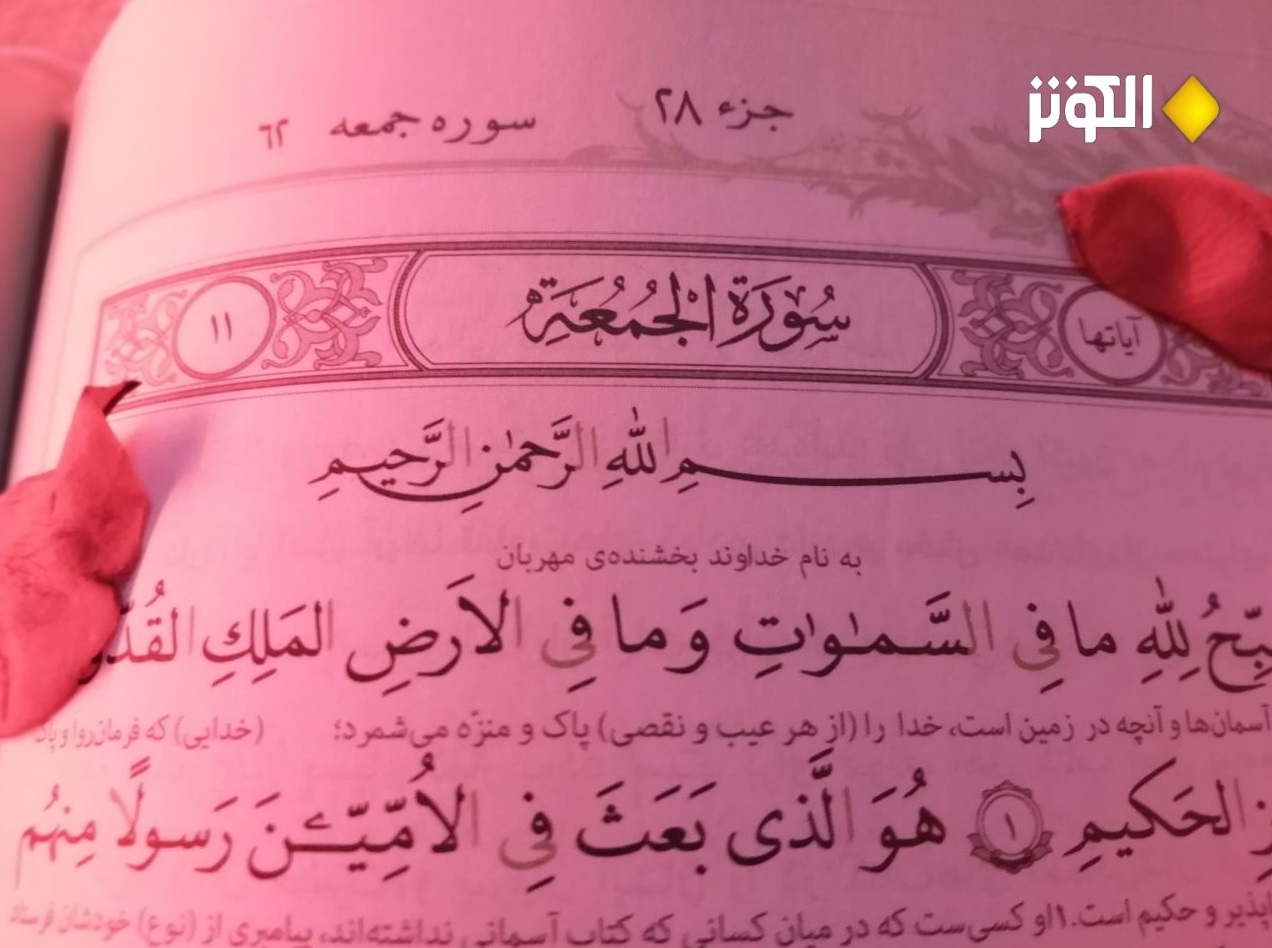 الكوثر
جزء ۲۸ سوره جمعه ۶۲
آیاتها سُورَةُ الْجُمُعَةِ ۱۱
بِسمِ اللَّهِ الرَّحمٰنِ الرَّحيمِ
به نام خداوند بخشنده‌ی مهربان
لِلَّهِ ما فِي السَّمٰوٰتِ وَما فِي الاَرضِ المَلِكِ
آسمان‌ها و آنچه در زمین است، خدا را (از هر عیب و نقصی) پاک و منزّه می‌شمرد؛ (خدایی) که فرمان‌روا و پاک
الحَكيمِ ۱ هُوَ الَّذى بَعَثَ فِي الاُمِّيّـۧنَ رَسولًا مِنهُم
و حکیم است.۱ او کسی‌ست که در میان کسانی که کتاب آسمانی نداشته‌اند، پیامبری از (نوع) خودشان